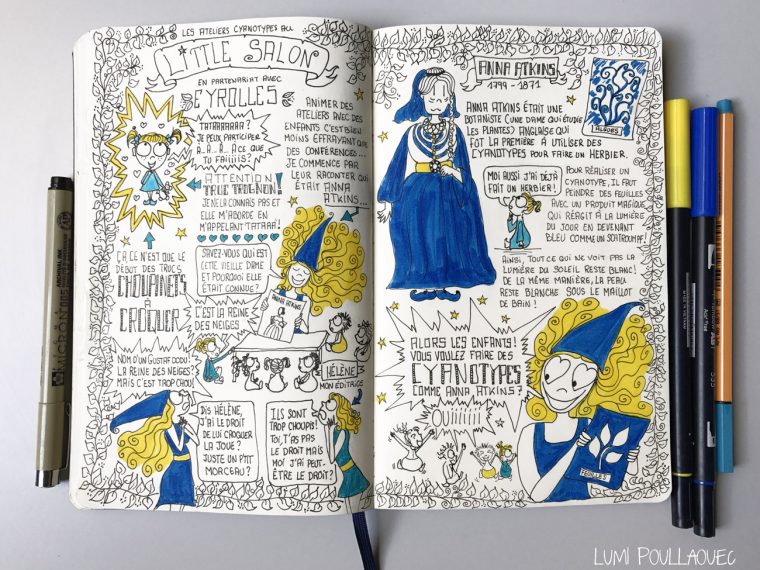 LES ATELIERS CYANOTYPES AU
LITTLE SALON
EN PARTENARIAT AVEC
EYROLLES
TATAAAAAAA?
JE PEUX PARTICIPER
À... À... À... À CE QUE
TU FAIIIIIS?
ATTENTION
TRUC TROGNON!
JE NE LA CONNAIS PAS ET
ELLE M'ABORDE EN
M'APPELANT TATAAA!
ANIMER DES
ATELIERS AVEC DES
ENFANTS C'EST BIEN
MOINS EFFRAYANT QUE
DES CONFÉRENCES...
JE COMMENCE PAR
LEUR RACONTER QUI
ÉTAIT ANNA
ATKINS...
ÇA, CE N'EST QUE LE
DÉBUT DES TRUCS
CHOUPINETS
À
CROQUER
SAVEZ-VOUS QUI EST
CETTE VIEILLE DAME
ET POURQUOI ELLE
ÉTAIT CONNUE?
ANNA ATKINS
C'EST LA REINE
DES NEIGES
NOM D'UN GUSTAF DODU!
LA REINE DES NEIGES?
MAIS C'EST TROP CHOU!
HÉLÈNE,
MON ÉDITRICE
DIS HÉLÈNE,
J'AI LE DROIT
DE LUI CROQUER
LA JOUE?
JUSTE UN P'TIT
MORCEAU?
ILS SONT
TROP CHOUPIS!
TOI, T'AS PAS
LE DROIT MAIS
MOI J'AI PEUT-
ÊTRE LE DROIT?
ANNA ATKINS
1799 - 1871
ALGUES
ANNA ATKINS ÉTAIT UNE
BOTANISTE (UNE DAME QUI ÉTUDIE
LES PLANTES) ANGLAISE QUI
FUT LA PREMIÈRE À UTILISER DES
CYANOTYPES POUR FAIRE UN HERBIER.
MOI AUSSI J'AI DÉJÀ
FAIT UN HERBIER!
POUR RÉALISER UN
CYANOTYPE, IL FAUT
PEINDRE DES FEUILLES
AVEC UN PRODUIT MAGIQUE
QUI RÉAGIT À LA LUMIÈRE
DU JOUR EN DEVENANT
BLEU COMME UN SCHTROUMPF!
AINSI, TOUT CE QUI NE VOIT PAS LA
LUMIÈRE DU SOLEIL RESTE BLANC!
DE LA MÊME MANIÈRE, LA PEAU
RESTE BLANCHE SOUS LE MAILLOT
DE BAIN!
ALORS LES ENFANTS!
VOUS VOULEZ FAIRE DES
CYANOTYPES
COMME ANNA ATKINS?
OUIIIIII!
FEUILLES
MICRON
LUMI POULLAOUEC